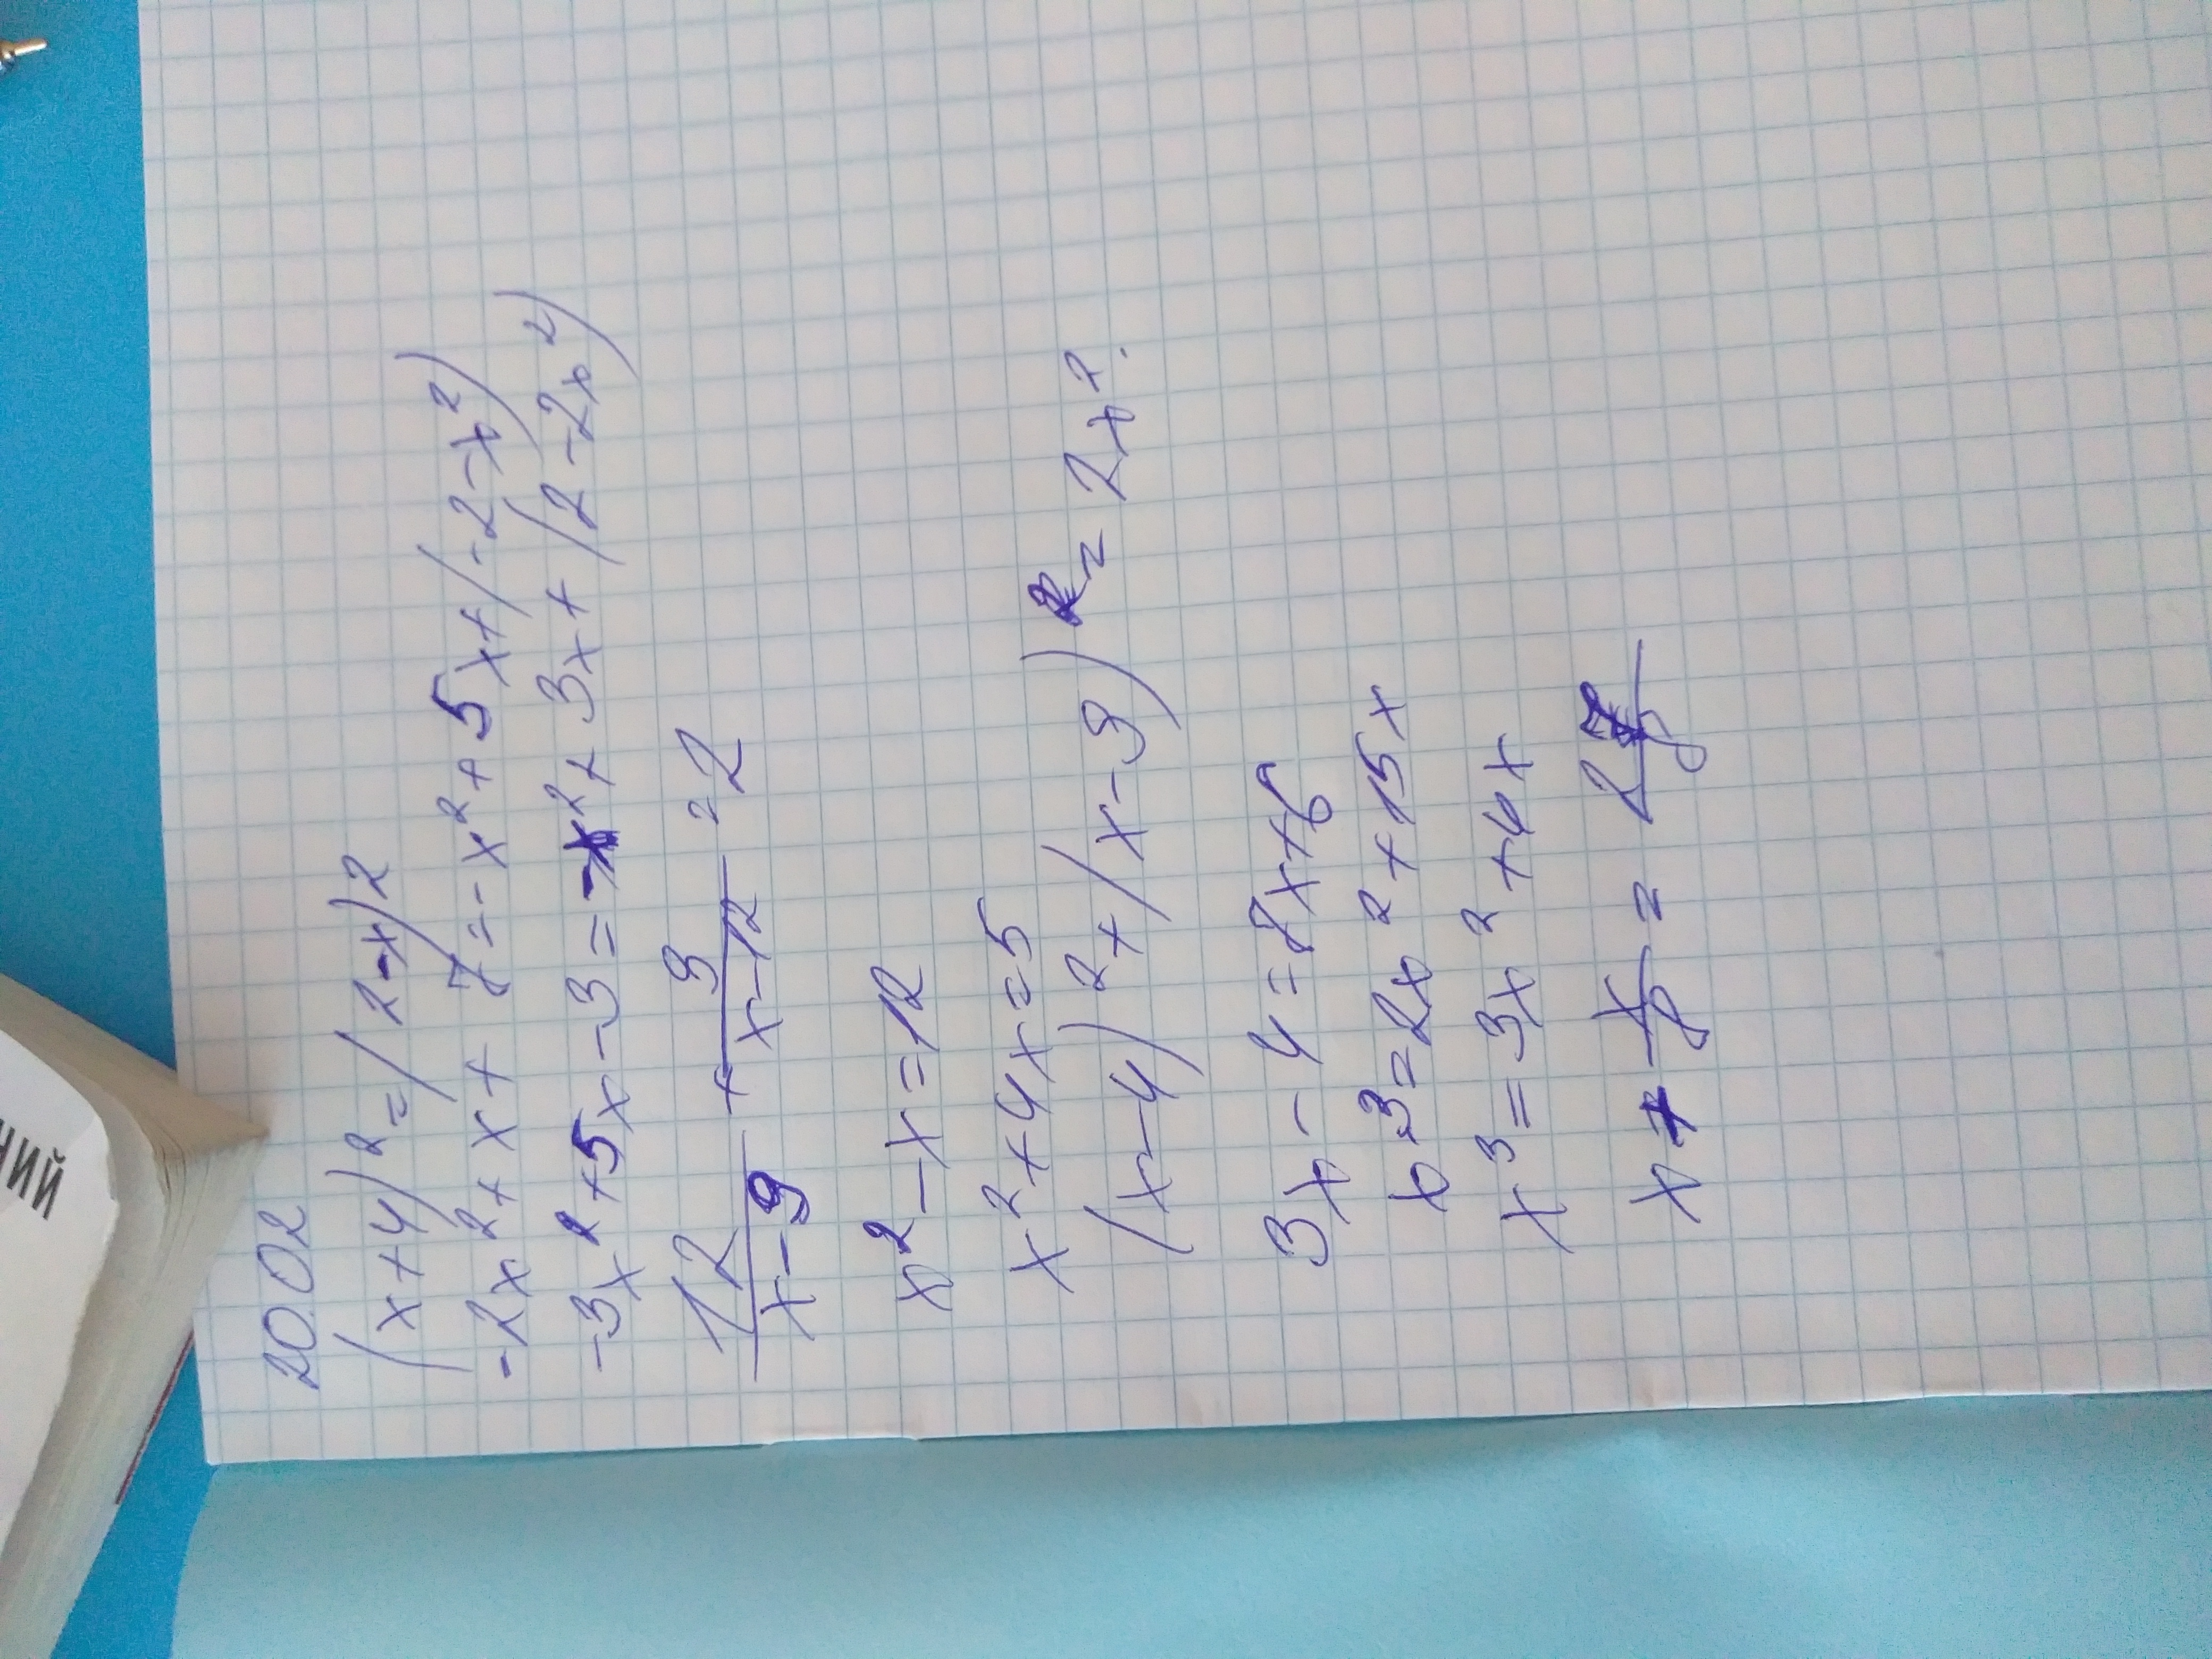 НИЙ
20.02
(x+4)²=(2-x)2
-2x²+x+7=-x²+5x+(-2-x²)
-3x²+5x-3=-x²+3x+(2-2x²)
12/(x-9) + 9/(x-12) = 2
x²-x=12
x²+4x=5
(x-4)²+(x-9)²=2x².
3x-4=8x+6
x³=2x²+15x
x³=3x²+4x